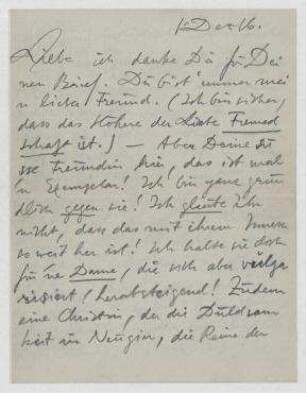 1. Dez 16.
Liebe ich danke Dir für Dei
nen Brief. Du bist immer mei
n lieber Freund. (Ich bin sicher,
dass das Höhere der Liebe Freund
schaft ist.) — Aber Deine
sse Freundin hin, das ist mal
'n Exemplar! Ich bin ganz gründ
lich gegen sie! Ich glaube
nicht, dass das mit ihrem Innern
so weit her ist! Ich halte sie doch
für 'ne Dame, die sich aber vulga
risiert (herabsteigend! Zudem
eine Christin, der die Duldsam
keit in Neugier, die Reine der